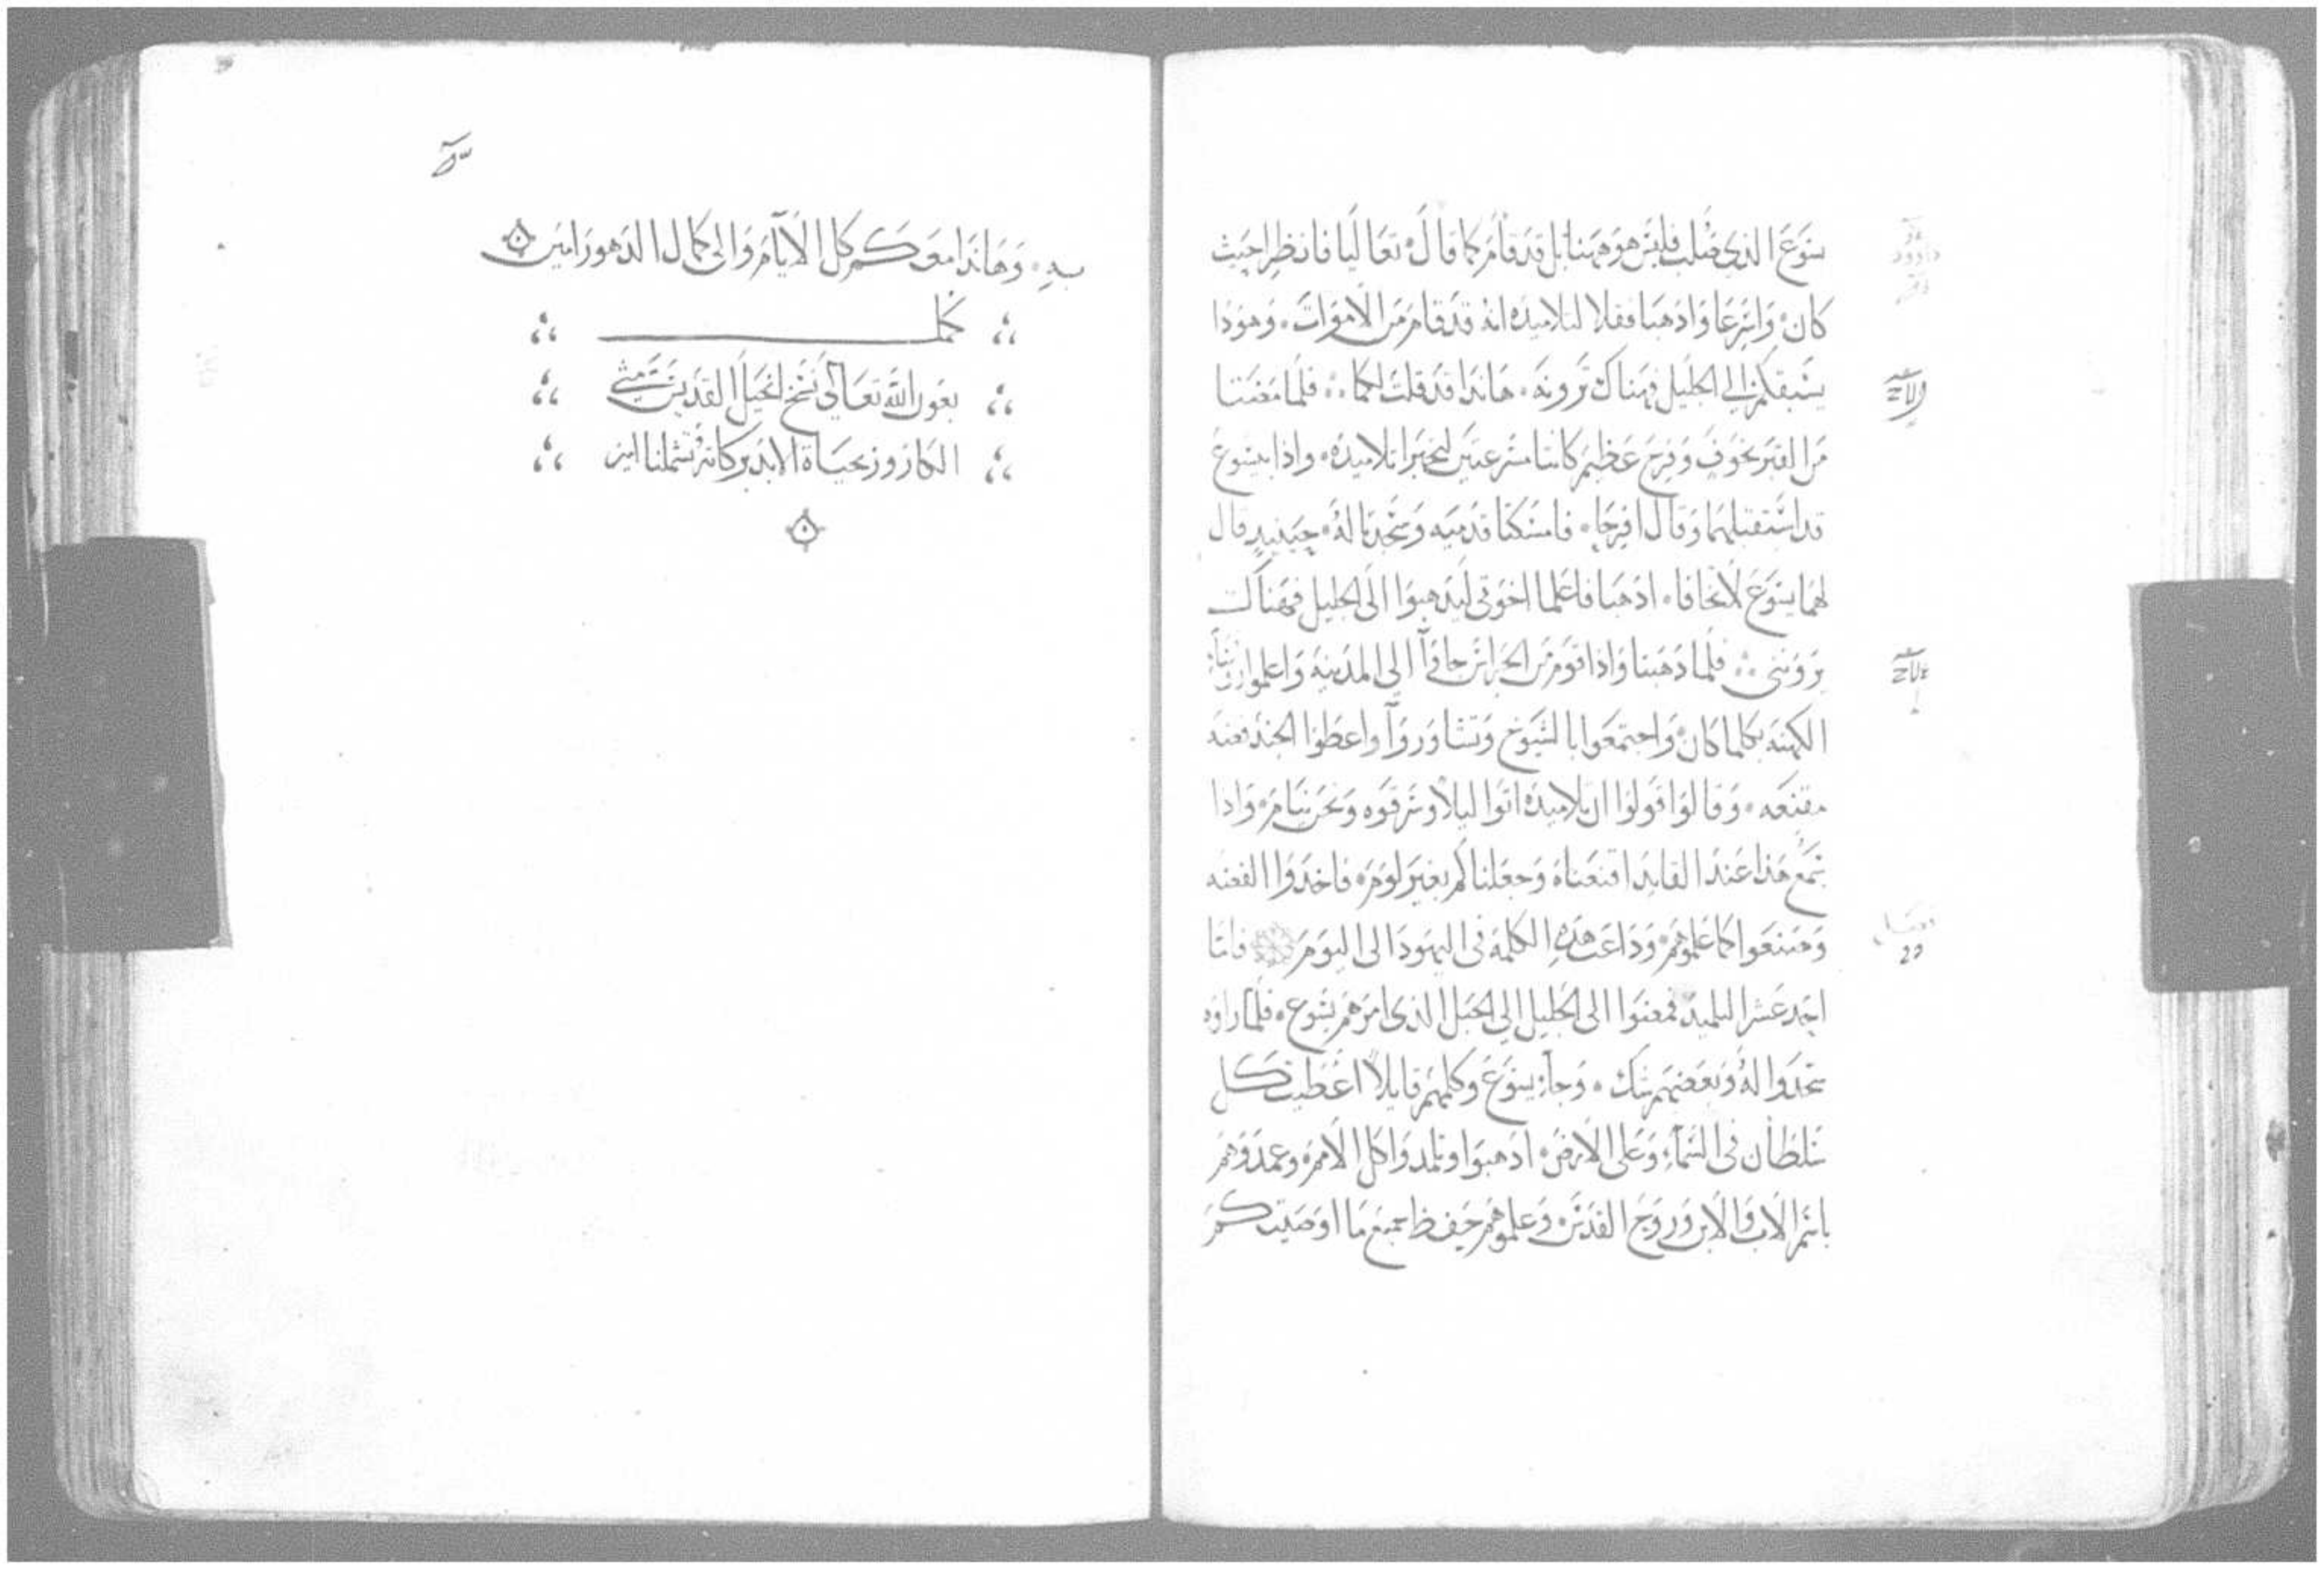 يسوع الذي صلب فليس هو ههنا بل قد قام كما قال تعاليا فانظرا حيث
كان واسرعا واذهبا فقلا لتلاميذه انه قد قام من الاموات وهوذا
يسبقكم الي الجليل فهناك ترونه هانذا قد قلت لكما فلما مضتا
من القبر بخوف وفرح عظيم كانتا مسرعتين لتخبرا تلاميذه واذا بيسوع
قد استقبلهما وقال افرحا فامسكتا قدميه وسجدتا له حينيذ قال
لهما يسوع لا تخافا اذهبا فاعلما اخوتي ليذهبوا الى الجليل فهناك
يرونني فلما ذهبتا واذا قوم من الحراس جاوا الى المدينه واعلموا روسا
الكهنه بكلما كان واجتمعوا بالشيوخ وتشاوروا واعطوا الجند فضه
مقنعه وقالوا قولوا ان تلاميذه اتوا ليلا وسرقوه ونحن نيام واذا
سمع هذا عند القايد اقنعناه وجعلناكم بغير لوم فاخذوا الفضه
وصنعوا كما علموهم وذاعت هذه الكلمة في اليهود الى اليوم فاما
احد عشر التلميذ فمضوا الى الجليل الي الجبل الذي امرهم يسوع فلما راوه
سجدوا له وبعضهم شك وجاء يسوع وكلمهم قايلا اعطيت كل
سلطان في السماء وعلى الارض اذهبوا وتلمدوا كل الامم وعمدوهم
باسم الاب والابن وروح القدس وعلموهم حفظ جميع ما اوصيتكم
به وهانذا معكم كل الايام والى كمال الدهور امين
كمل
بعون الله تعالي نسخ انجيل القديس متي
الكاروز بحياة الابد بركاته تشملنا امين